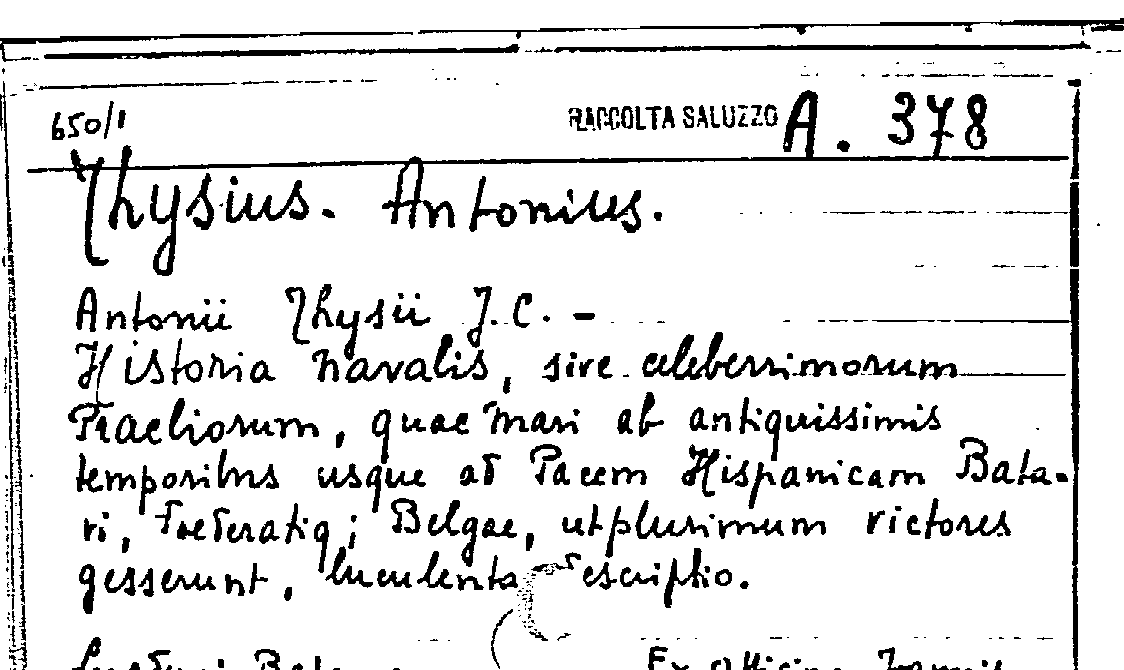 650/1 RACCOLTA SALUZZO A. 378
Thysius. Antonius.
Antonii Thysii J.C. -
Historia navalis, sive celeberrimorum
Praeliorum, quae mari ab antiquissimis
temporibus usque ad Pacem Hispanicam Bata-
vi, Foederatiq; Belgae, utplurimum victores
gesserunt, luculenta descriptio.
Ex officina Joannis